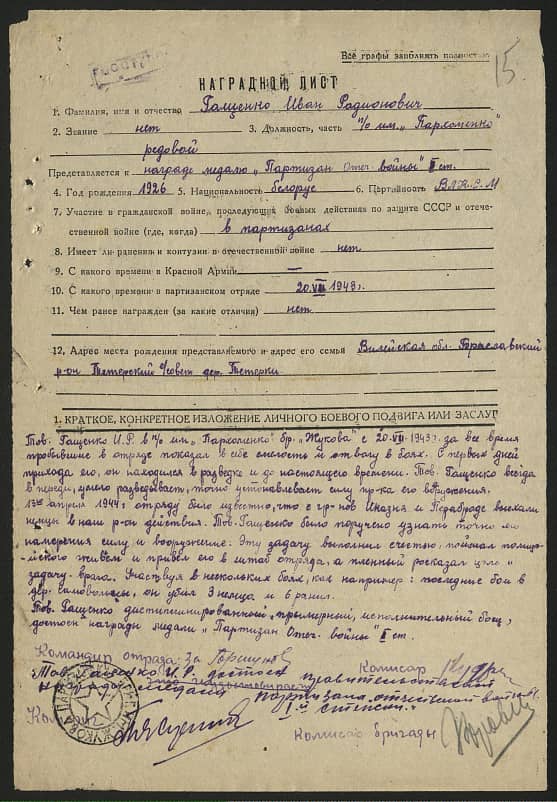 Все графы заполнять полностью
15
НАГРАДНОЙ ЛИСТ
1. Фамилия, имя и отчество Гащенко Иван Радионович
2. Звание нет 3. Должность, часть п/о им. „Пархоменко"
редовой
Представляется к награде медалю „Партизан Отеч. войны" II ст.
4. Год рождения 1926 5. Национальность белорус 6. Партийность ВЛКСМ
7. Участие в гражданской войне, последующих боевых действиях по защите СССР и отече-
ственной войне (где, когда) в партизанах
8. Имеет ли ранения и контузии в отечественной войне нет
9. С какого времени в Красной Армии —
10. С какого времени в партизанском отряде 20.VII 1943г.
11. Чем ранее награжден (за какие отличия) нет
12. Адрес места рождения представляемого и адрес его семьи Вилейская обл. Браславский
р-он Тетерский с/совет дер. Тетерки
1. КРАТКОЕ, КОНКРЕТНОЕ ИЗЛОЖЕНИЕ ЛИЧНОГО БОЕВОГО ПОДВИГА ИЛИ ЗАСЛУГ
Тов. Гащенко И.Р. в п/о им. „Пархоменко" бр. „Жукова" с 20.VII-1943г. за все время
пробившие в отряде показал в себе смелость и отвагу в боях. С первых дней
прихода его, он находился в разведке и до настоящего времени. Тов. Гащенко всегда
впереди, умело разведывает, точно устонавливает силу пр-ка его воружения.
апреля 1944г. отряду было известно, что с гр-нов Иказня и Перабродье выехали
немцы в наш р-он действия. Тов. Гащенко было поручено узнать точно его
намерения силу и вооружение. Эту задачу выполнил счестью, поймал полицей-
ского живьем и привел его в штаб отряда, а пленный росказал цель и
задачу врага. Участвуя в нескольких боях, как например: последние бои в
дер. Самовольцы, он убил 3 немца и 6 ранил.
Тов. Гащенко дистиплинированной, примерный, исполнительный боец,
достоен награды медали „Партизан Отеч. войны" II ст.
Командир отряда: За Комисар
Тов. Гащенко И.Р. достоен правительственной
награды медали партизана отечественной войны
I й степени.
Комисар бригады